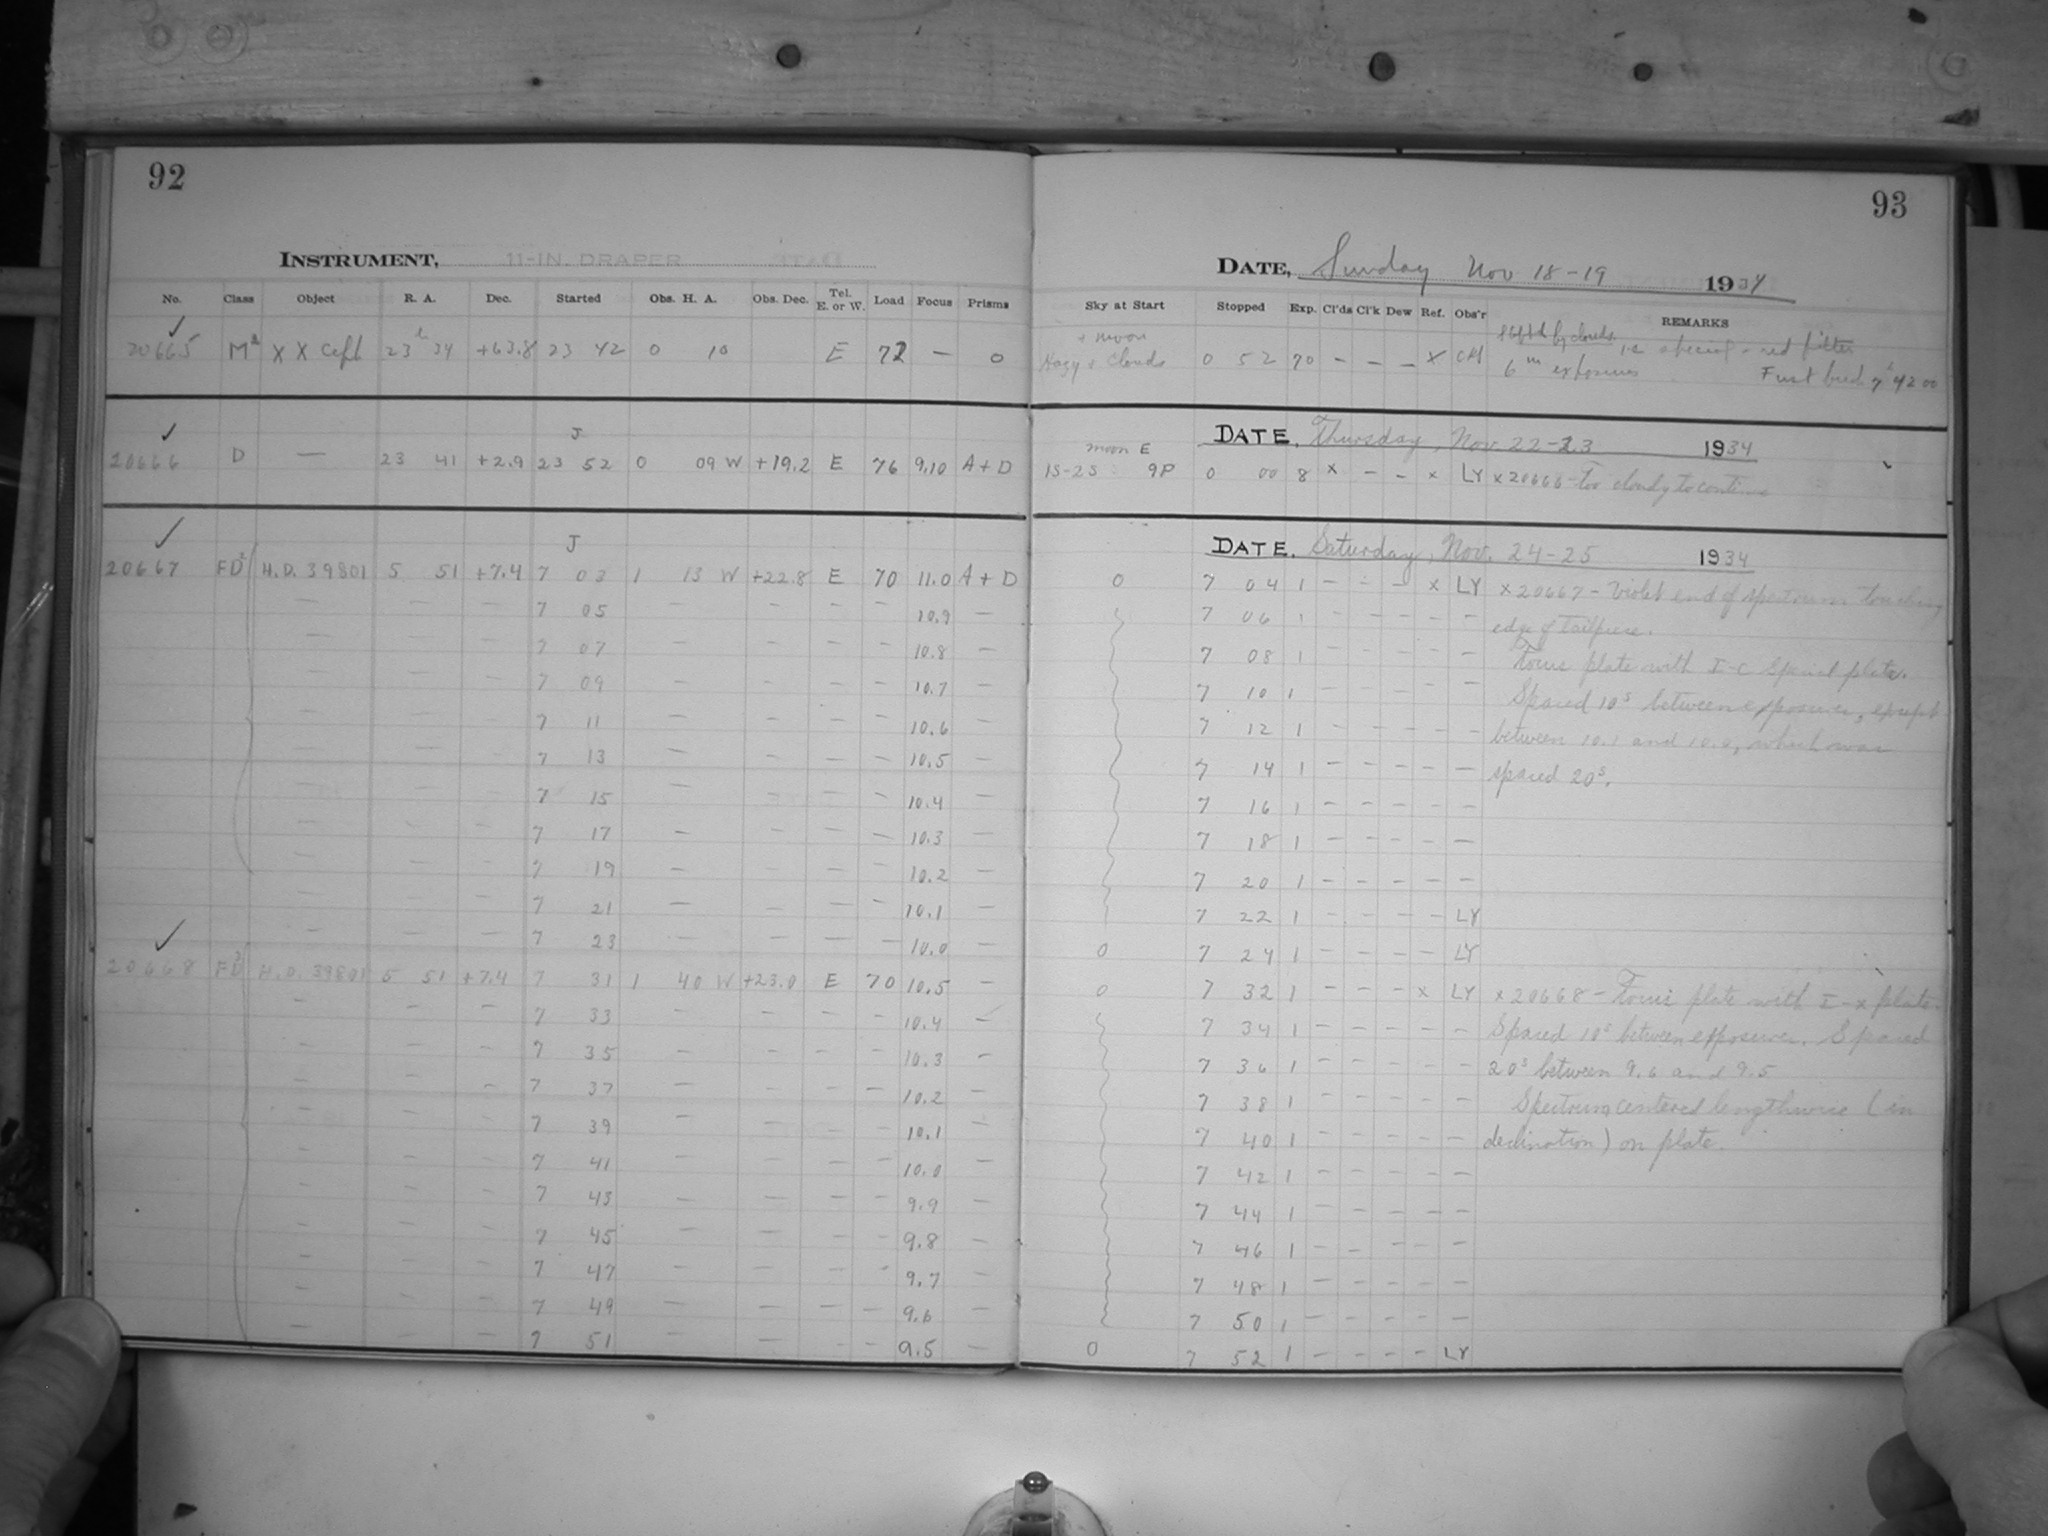 92
INSTRUMENT, 11-IN. DRAPER
No. Class Object R. A. Dec. Started Obs. H. A. Obs. Dec. Tel. E. or W. Load Focus Prisms
20665 M² X X Ceph 23ʰ 34 +63.8 23 42 0 10 E 72 — 0
20666 D — 23 41 +2.9 J 23 52 0 09 W +19.2 E 76 9.10 A + D
20667 FD² H.D. 39801 5 51 +7.4 J 7 03 1 13 W +22.8 E 70 11.0 A + D
— — — 7 05 — — — — 10.9 —
— — — 7 07 — — — — 10.8 —
— — — 7 09 — — — — 10.7 —
— — — 7 11 — — — — 10.6 —
— — — 7 13 — — — — 10.5 —
— — — 7 15 — — — — 10.4 —
— — — 7 17 — — — — 10.3 —
— — — 7 19 — — — — 10.2 —
— — — 7 21 — — — — 10.1 —
— — — 7 23 — — — — 10.0 —
20668 FD² H.D. 39801 5 51 +7.4 7 31 1 40 W +23.0 E 70 10.5 —
— — — 7 33 — — — — 10.4 —
— — — 7 35 — — — — 10.3 —
— — — 7 37 — — — — 10.2 —
— — — 7 39 — — — — 10.1 —
— — — 7 41 — — — — 10.0 —
— — — 7 43 — — — — 9.9 —
— — — 7 45 — — — — 9.8 —
— — — 7 47 — — — — 9.7 —
— — — 7 49 — — — — 9.6 —
— — — 7 51 — — — — 9.5 —
93
DATE, Sunday Nov 18-19 1934
Sky at Start Stopped Exp. Cl'ds Cl'k Dew Ref. Obs'r REMARKS
+ moon by clouds
Hazy + Clouds 0 52 70 — — — x special - red filter
6ᵐ exposures 7ʰ 42 00
DATE, Thursday, Nov. 22-23 1934
moon E
1S-2S 9P 0 00 8 x — — x LY x 20666 - too cloudy to continue
DATE, Saturday, Nov. 24-25 1934
0 7 04 1 — — — x LY x 20667 - Violet end of spectrum touching
7 06 1 — — — — — edge of tailpiece.
7 08 1 — — — — — Focus plate with I-C Special plate.
7 10 1 — — — — — Spaced 10ˢ between exposures, except
7 12 1 — — — — — between 10.1 and 10.0, which was
7 14 1 — — — — — spaced 20ˢ.
7 16 1 — — — — —
7 18 1 — — — — —
7 20 1 — — — — —
7 22 1 — — — — LY
0 7 24 1 — — — — LY
0 7 32 1 — — — x LY x 20668 - Focus plate with I-X plate.
7 34 1 — — — — — Spaced 10ˢ between exposures. Spaced
7 36 1 — — — — — 20ˢ between 9.6 and 9.5
7 38 1 — — — — — Spectrum centered lengthwise (in
7 40 1 — — — — — declination) on plate.
7 42 1 — — — — —
7 44 1 — — — — —
7 46 1 — — — — —
7 48 1 — — — — —
7 50 1 — — — — —
0 7 52 1 — — — — LY